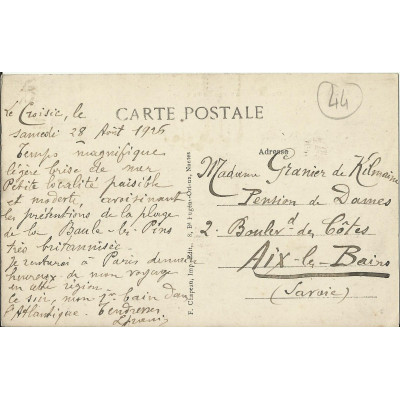 CARTE POSTALE
44
Le Croisic, le
samedi 28 Août 1926
Temps magnifique
légère brise de mer
Petite localité paisible
et modeste, avoisinant
les prétentions de la plage
de la Baule les Pins
très britannisée.
Je rentrerai à Paris
heureux de mon voyage
en cette région.
Ce soir, mon 1er bain dans
l'Atlantique. Tendresses
Adresse
Madame Granier de Kilmaine
Pension de Dames
2 Boulevd des Côtes
Aix-les-Bains
(Savoie)
F. Chapeau, Imp. Edit., Nantes